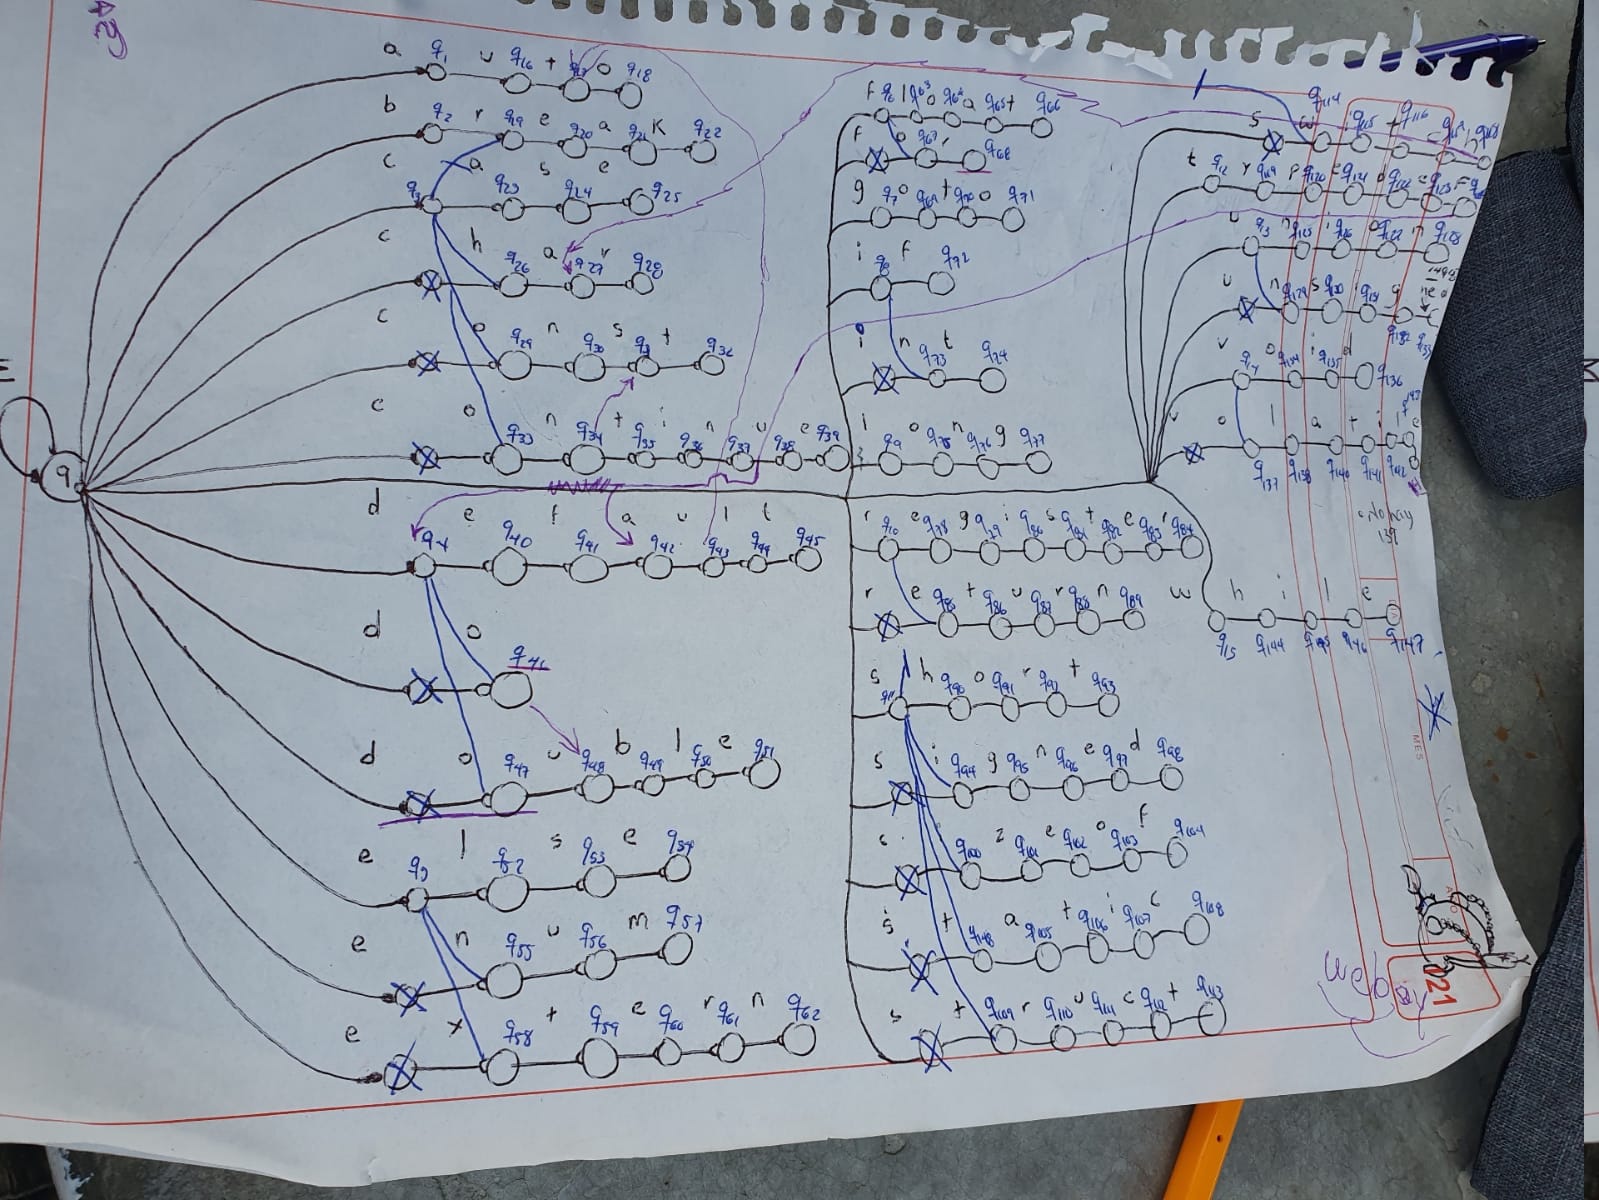 a q1 u q16 t o q18
b q2 r q19 e q20 a q21 K q22
c q3 a q23 s q24 e q25
c h q26 a q27 r q28
c o q29 n q30 s q31 t q32
c o q33 n q34 t q35 i q36 n q37 u q38 e q39
q
d q4 e q40 f q41 a q42 u q43 l q44 t q45
d o q46
d o q47 u q48 b q49 l q50 e q51
e q5 l q52 s q53 e q54
e n q55 u q56 m q57
e x q58 t q59 e q60 r q61 n q62
f q6 l q63 o q64 a q65 t q66
f o q67 r q68
g q7 o q69 t q70 o q71
i q8 f q72
i n q73 t q74
l q9 o q75 n q76 g q77
r q10 e q78 g q79 i q80 s q81 t q82 e q83 r q84
r e q85 t q86 u q87 r q88 n q89
s q11 h q90 o q91 r q92 t q93
s i q94 g q95 n q96 e q97 d q98
s i q100 z q101 e q102 o q103 f q104
s t q148 a q105 t q106 i q107 c q108
s t q109 r q110 u q111 c q112 t q113
s w q114 i q115 t q116
t q12 y q119 p q120 e q121 d q122 e q123 F
u q13 n q125 i q126 o q127 n q128
u n q129 s q130 i q131 g n e d q132 q133
v q14 o q134 i q135 d q136
v o q137 l q138 a q140 t q141 i q142 l e
no hay
139
w q15 h q144 i q145 l q146 e q147
MES
021